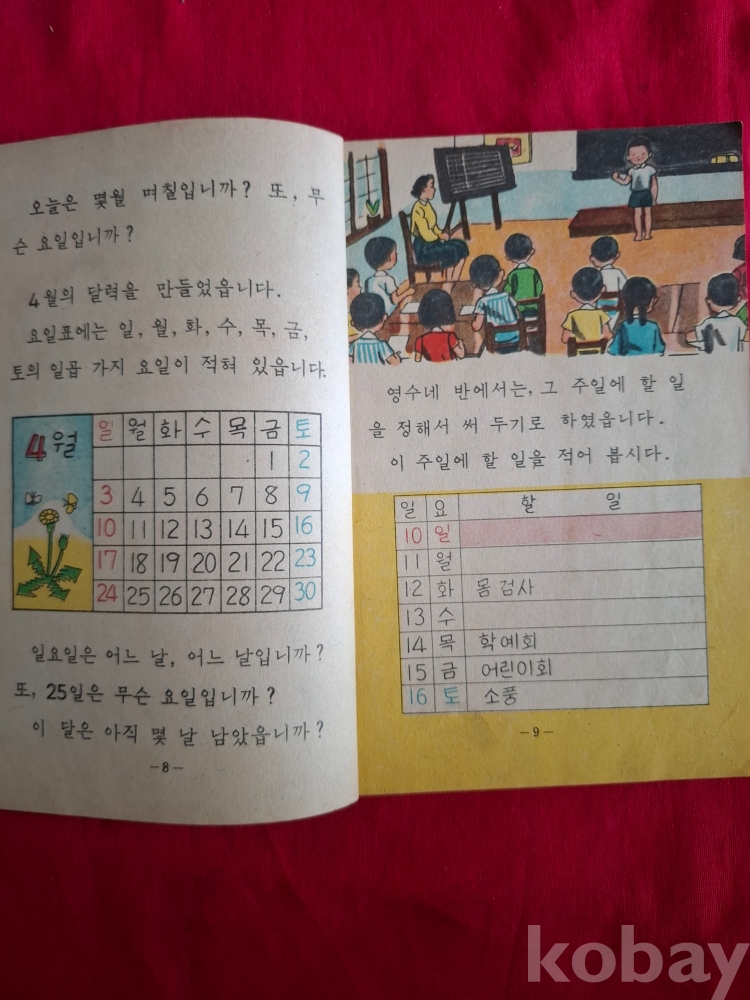 오늘은 몇월 며칠입니까? 또, 무
슨 요일입니까?
4월의 달력을 만들었읍니다.
요일표에는 일, 월, 화, 수, 목, 금,
토의 일곱 가지 요일이 적혀 있읍니다.
4월
일 월 화 수 목 금 토
1 2
3 4 5 6 7 8 9
10 11 12 13 14 15 16
17 18 19 20 21 22 23
24 25 26 27 28 29 30
일요일은 어느 날, 어느 날입니까?
또, 25일은 무슨 요일입니까?
이 달은 아직 몇 날 남았읍니까?
-8-
영수네 반에서는, 그 주일에 할 일
을 정해서 써 두기로 하였읍니다.
이 주일에 할 일을 적어 봅시다.
일 요 할 일
10 일
11 월
12 화 몸 검사
13 수
14 목 학예회
15 금 어린이회
16 토 소풍
-9-
kobay